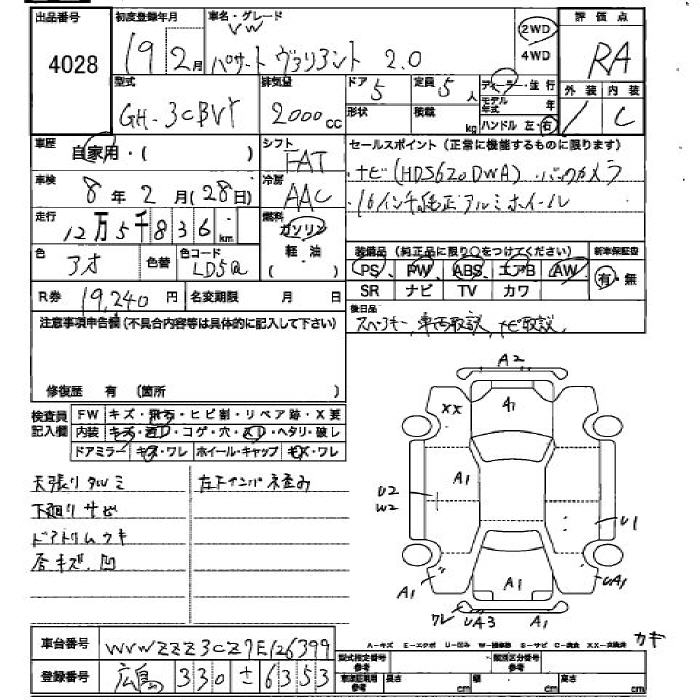 出品番号 初度登録年月 車名・グレード 評価点
4028 19 2月 VW パサート ヴァリアント 2.0 2WD 4WD RA
型式 排気量 ドア 5 定員 5人 ディーラー・並行 外装 内装
GH-3CBVY 2000cc 形状 積載 kg モデル年式 年 ハンドル 左・右 C
車歴 自家用・( ) シフト FAT セールスポイント(正常に機能するものに限ります)
車検 8年 2月(28日) 冷房 AAC ・ナビ(HDS620DWA) バックカメラ
走行 12万5千836km 燃料 ガソリン 軽・油 ( ) ・16インチ純正アルミホイール
色 アオ 色替 色コード LD5Q 装備品(純正品に限り○をつけてください) 新車保証書
PS PW ABS エアB AW 有・無
R券 19,240円 名変期限 月 日 SR ナビ TV カワ
注意事項申告欄(不具合内容等は具体的に記入して下さい) 後日品
スペアキー、車両取説、ナビ取説
修復歴 有 (箇所 )
検査員記入欄 FW キズ・飛石・ヒビ割・リペア跡・X要
内装 キズ・コゲ・穴・ヘタリ・破レ
ドアミラー キズ・ワレ ホイール・キャップ キズ・ワレ
天張りタルミ 左下インパ歪み
下廻りサビ
ドアトリムウキ
各キズ、凹
A2
XX
A1
A1
U2
W2
U1
A1
A1
UA1
ワレ UA3 A1
A-キズ E-エクボ U-凹み S-サビ C-腐食
カギ
車台番号 WVWZZZ3CZ7E126399
登録番号 広島 330 さ 6353
型式指定番号 参考 類別区分番号 参考
長さ cm 幅 cm 高さ cm